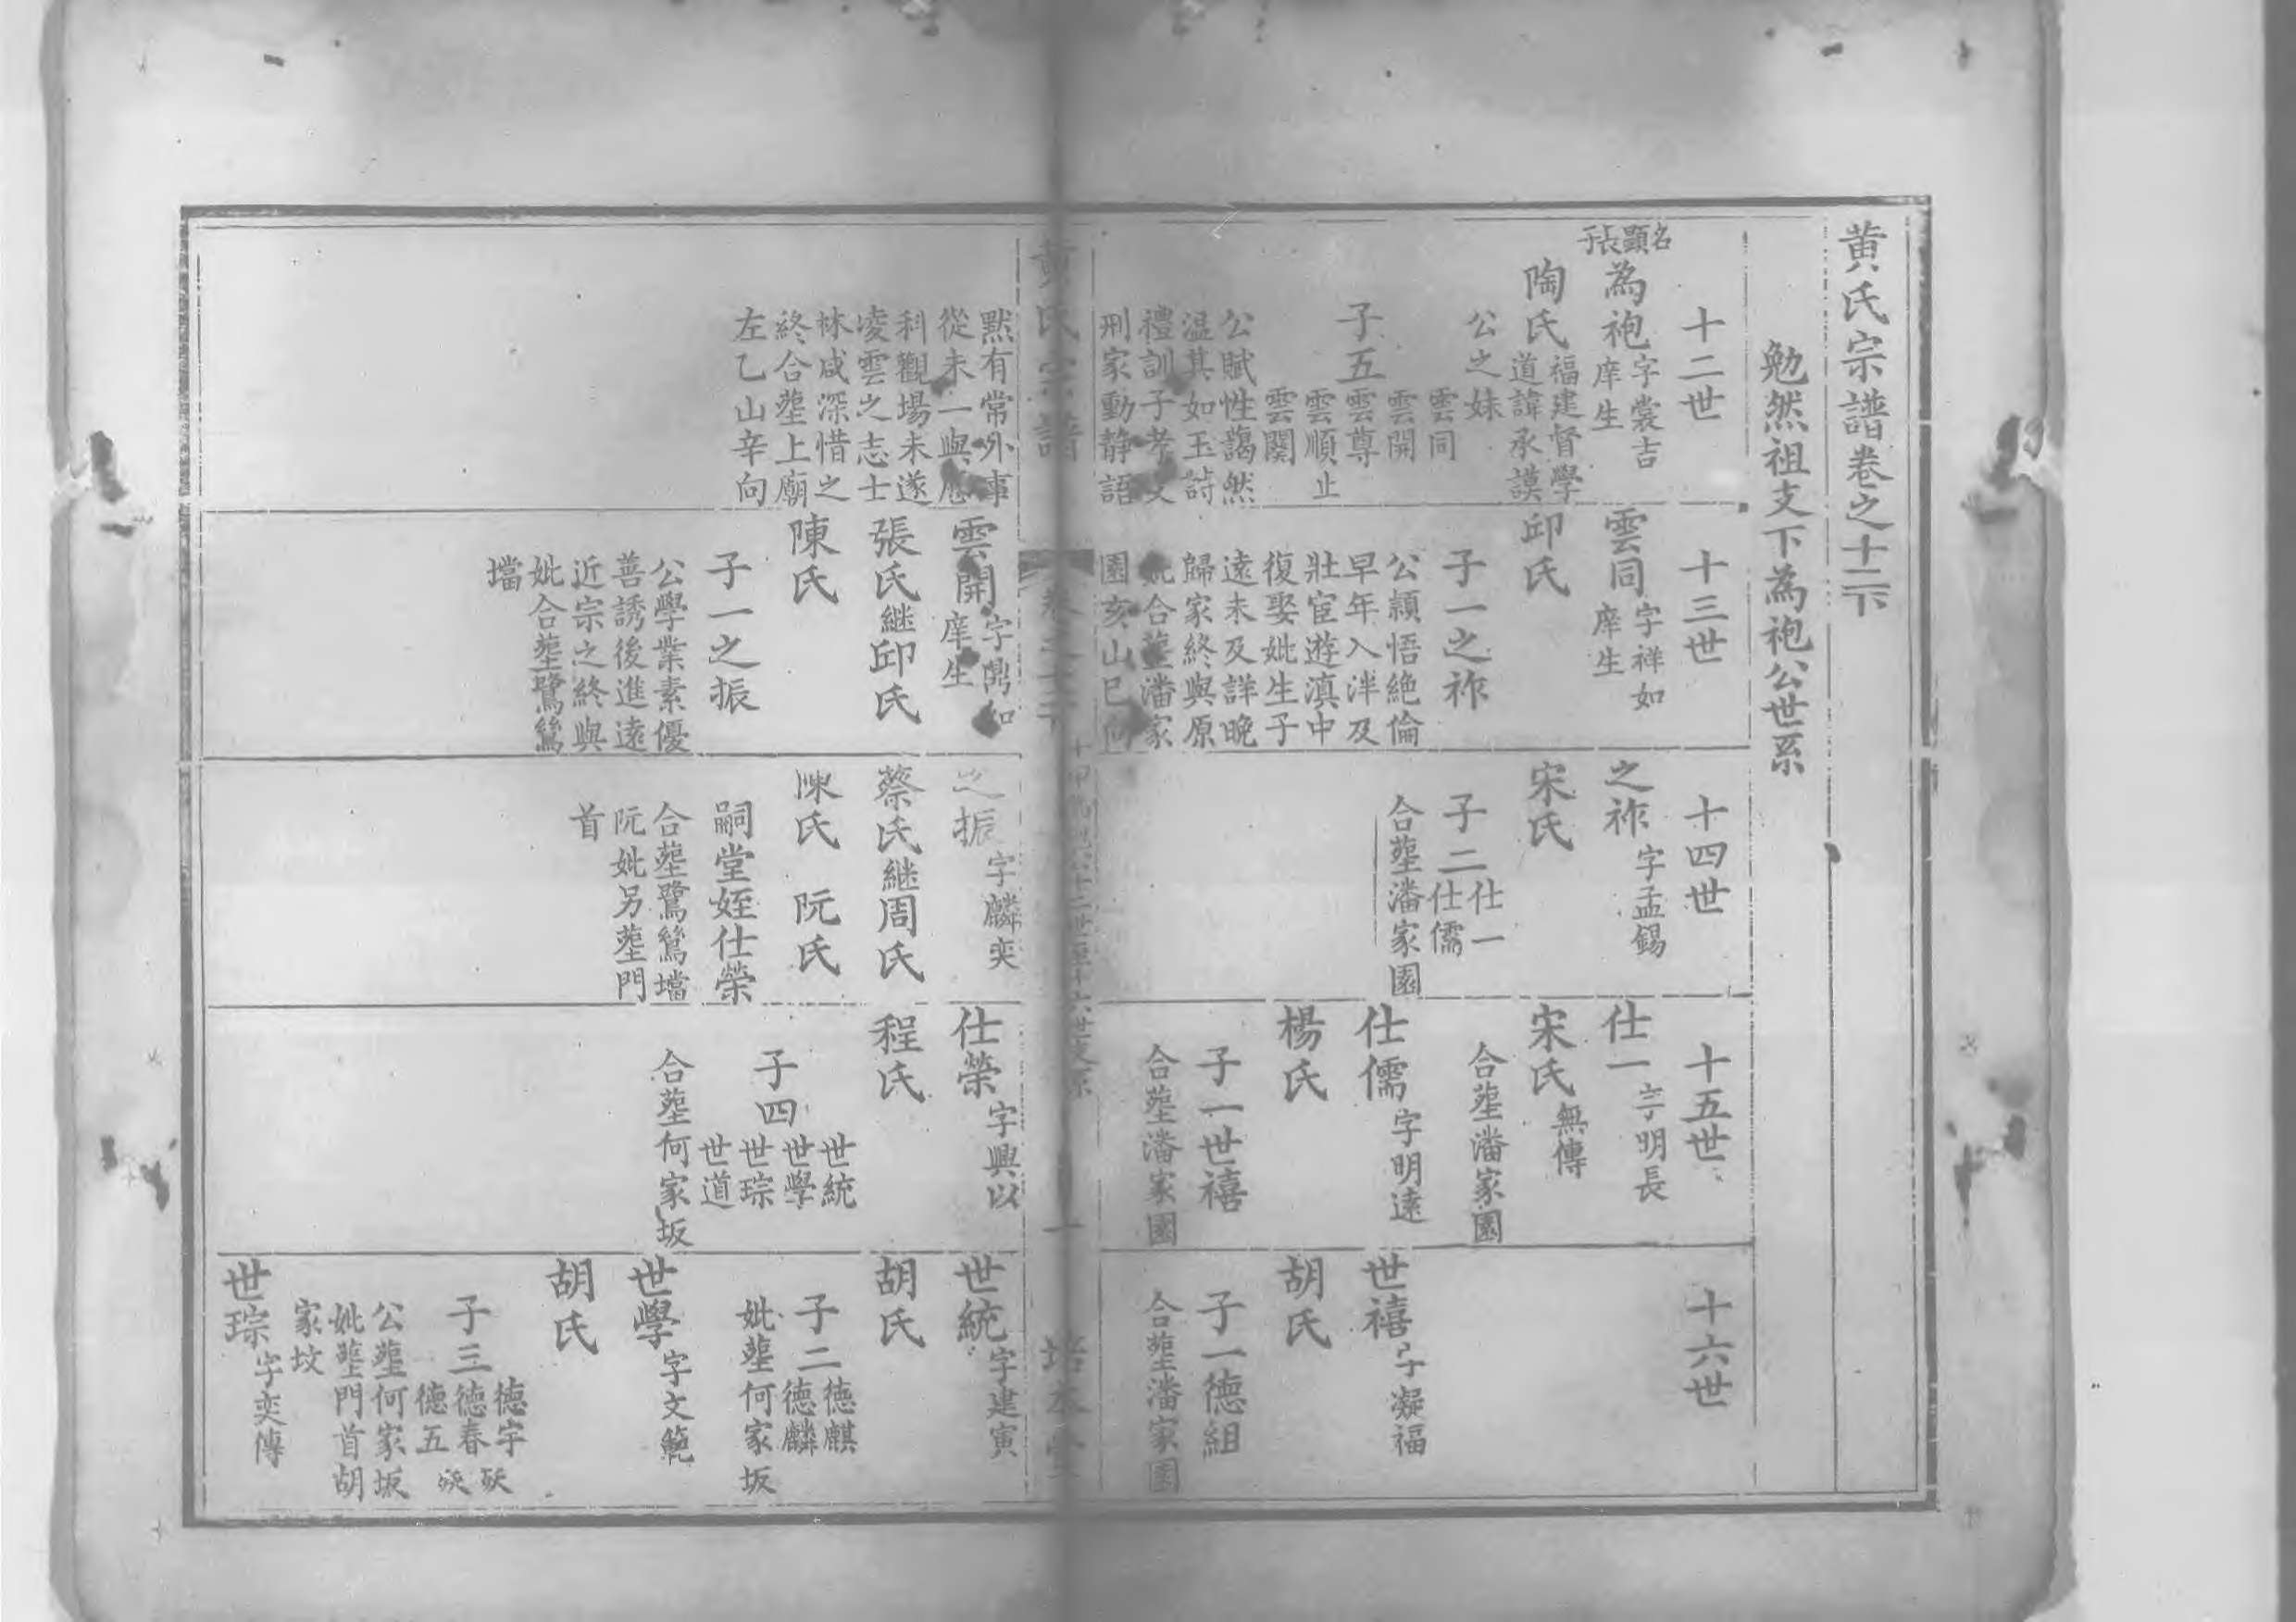 黄氏宗譜卷之十二下
勉然祖支下為袍公世系
十二世
名顯長子
為袍
字裳吉
庠生
陶氏
福建督學
道諱承謨
公之妹
子五
雲同
雲開
雲尊
雲順止
雲關
公賦性藹然
溫其如玉詩
禮訓子孝友
刑家動静語
十三世
雲同
字祥如
庠生
邱氏
子一之祚
公穎悟絶倫
早年入泮及
壯宦遊滇中
復娶妣生子
遠未及詳晚
歸家終與原
妣合塟潘家
園亥山巳向
十四世
之祚
字孟錫
宋氏
子二
仕一
仕儒
合塟潘家園
十五世
仕一
字明長
宋氏
無傳
合塟潘家園
仕儒
字明遠
楊氏
子一世禧
合塟潘家園
十六世
世禧
字凝福
胡氏
子一德組
合塟潘家園
黄氏宗譜
卷之十二下
十二世至十六世支系
一
培本堂
默有常外事
從未一與應
科觀場未遂
凌雲之志士
林咸深惜之
終合塟上廟
左乙山辛向
雲開
庠生
張氏繼邱氏
陳氏
子一之振
公學業素優
善誘後進遠
近宗之終與
妣合塟鷺鷥
壋
之振
字麟奕
蔡氏繼周氏
陳氏 阮氏
嗣堂姪仕榮
合塟鷺鷥壋
阮妣另塟門
首
仕榮
字興以
程氏
子四
世統
世學
世琮
世道
合塟何家坂
世統
字建寅
胡氏
子二
德麒
德麟
妣塟何家坂
世學
字文範
胡氏
子三
德宇殀
德春殀
德五
公塟何家坂
妣塟門首胡
家坟
世琮
字奕傳